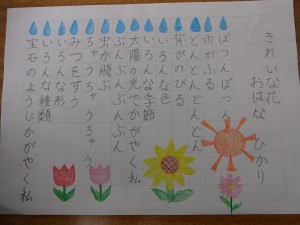 きれいな花
おはな ひかり
ぽつんぽつん
雨がふる
どんどんどんどん
背がのびる
いろんな色
いろんな季節
太陽の光でかがやく私
ぶんぶんぶんぶん
虫が飛ぶ
ちゅうちゅうちゅう
みつをすう
いろんな形
いろんな種類
宝石のようにかがやく私